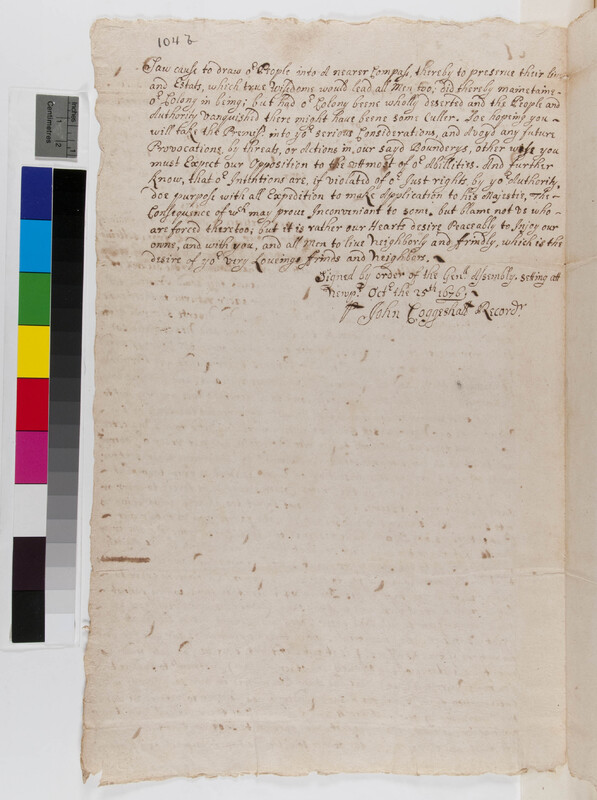 104 b
Saw cause to draw oʳ People into A nearer Compass, thereby to preserve their
and Estats, which true Wisdome would lead all Men too; did thereby maintaine
oʳ Colony in being; but had oʳ Colony beene wholly deserted and the People and
Authority vanquished there might have beene some Culler. Soe hoping you
will take the Premiss: into yoʳ serious Considerations, and Avoyd any future
Provocations, by threats, or Actions in, our sayd Bounderys, other wise you
must Expect our Opposition to the uttmost of oʳ Abillities. And further
Know, that oʳ Intentions are, if violated of oʳ Just rights, by yoʳ Authority,
doe purpose with all Expedition to make Application to his Majestie, The
Consequence of wᶜʰ may prove Inconveniant to some, but blame not us who
are forced thereto; but it is rather our Hearts desire Peaceably to Injoy our
owne, and with you, and all Men to live Neighborly and frindly, which is the
desire of yoʳ very Loveinge frinds and Neighbors.
Signed by order of the Genˡˡ Assembly. seting att
Newpᵗ Octʳ the 25ᵗʰ 1676
John Coggeshall Recordʳ
Centimetres
Inches